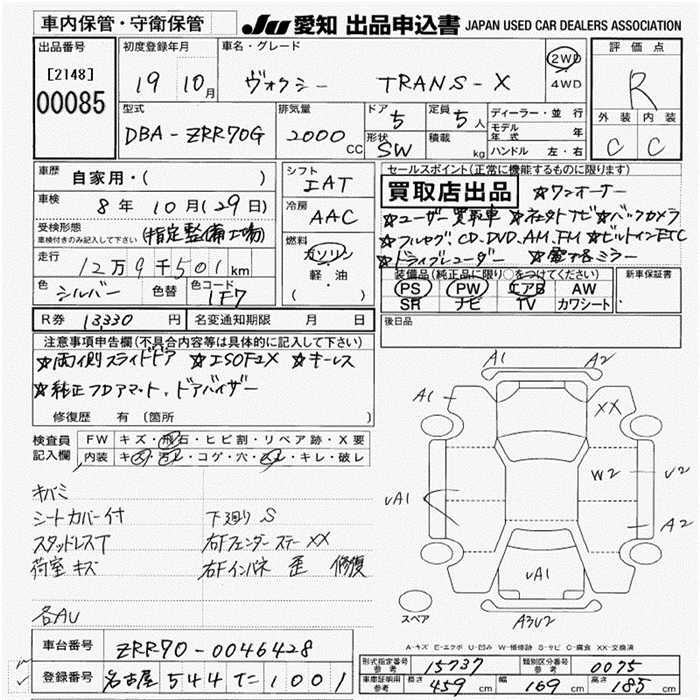 車内保管・守衛保管 JU 愛知 出品申込書 JAPAN USED CAR DEALERS ASSOCIATION
出品番号 初度登録年月 車名・グレード 評価点
[2148] 19 10月 ヴォクシー TRANS-X 2WD 4WD R
00085 型式 排気量 ドア 5 定員 5人 ディーラー・並行 外装 内装
DBA-ZRR70G 2000 CC 形状 SW 積載 kg モデル年式 年 C C
ハンドル 左・右
車歴 自家用・( ) シフト IAT セールスポイント(正常に機能するものに限ります)
車検 8年 10月(29日) 冷房 AAC 買取店出品 ☆ワンオーナー
受検形態 車検付きのみ記入して下さい (指定整備工場) 燃料 ガソリン・軽・油 ( )
☆ユーザー買取車 ☆社外ナビ ☆バックカメラ
☆フルセグ.CD.DVD.AM.FM ☆ビルトインETC
☆ドライブレコーダー ☆電格ミラー
走行 12万9千501km 装備品(純正品に限り○をつけてください) 新車保証書
色 シルバー 色替 色コード 1F7 PS PW エアB AW
SR ナビ TV カワシート
R券 13330円 名変通知期限 月 日 後日品
注意事項申告欄(不具合内容等は具体的に記入して下さい)
☆両側スライドドア ☆ISOFIX ☆キーレス
☆純正フロアマット、ドアバイザー
修復歴 有 (箇所
検査員記入欄 FW キズ・飛石・ヒビ割・リペア跡・X要
内装 キズ・汚レ・コゲ・穴・スレ・キレ・破レ
キバミ
シートカバー付 下廻り S
スタッドレスT 右Fフェンダーステー XX
荷室キズ 右Fインパネ 歪 修復
各AU
A1 A2
A1 XX
W2 U2
UA1 A2
UA1
スペア A3U2
A-キズ E-エクボ U-凹み W-補修跡 S-サビ C-腐食 XX-交換済
車台番号 ZRR70-0046428
登録番号 名古屋 544 て 1001
型式指定番号 参考 15737 類別区分番号 参考 0075
車庫証明用 参考 長さ 459cm 幅 169cm 高さ 185cm